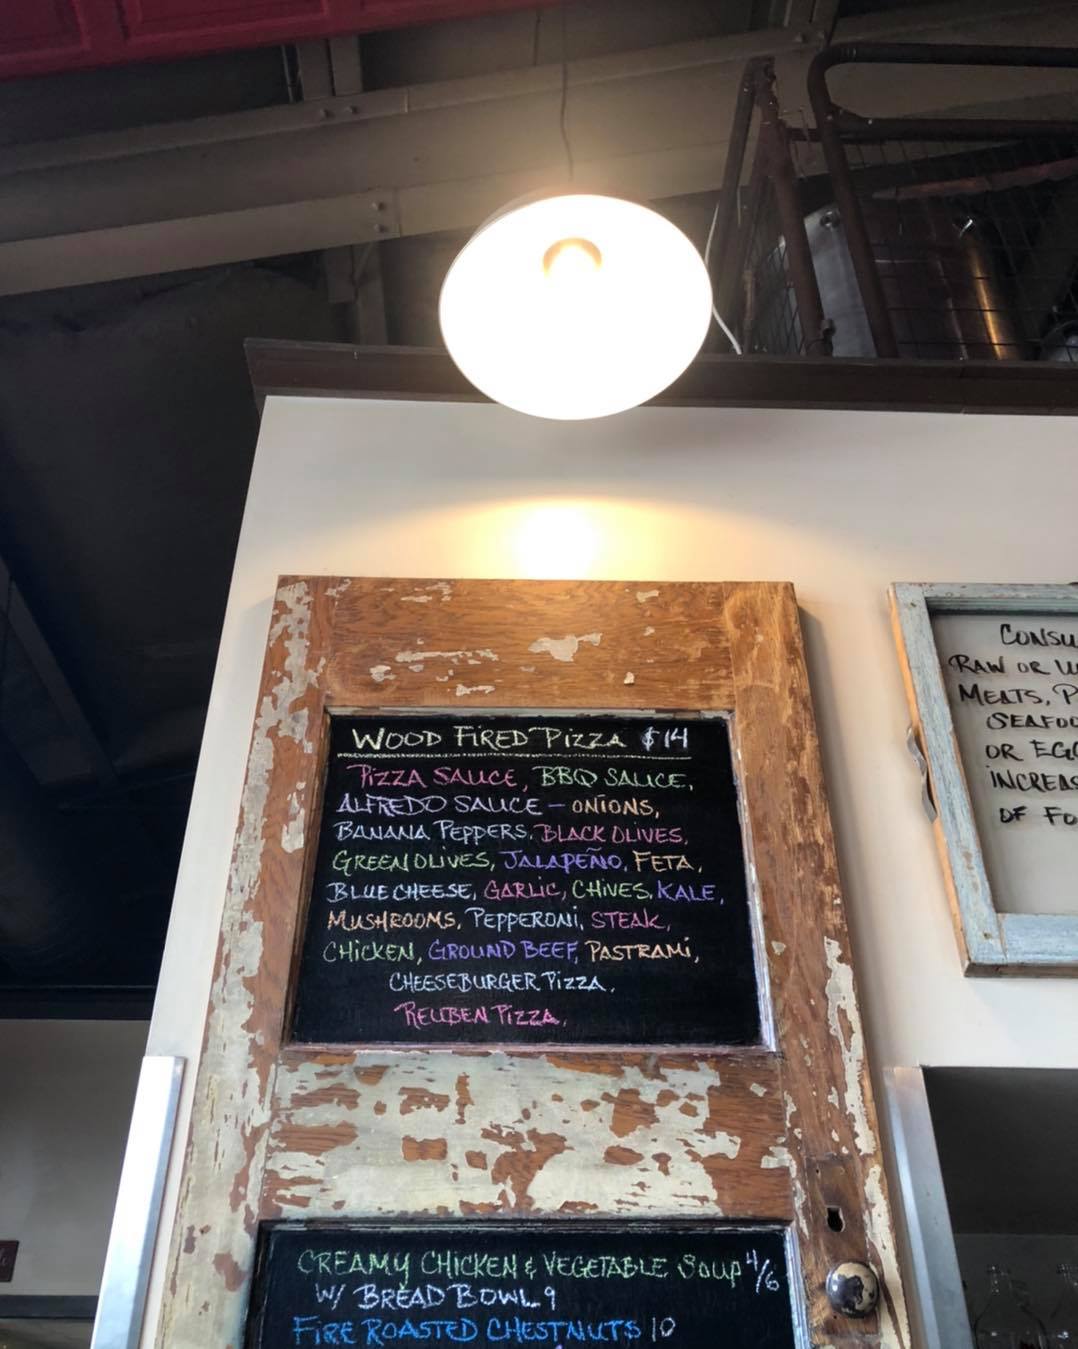 WOOD FIRED PIZZA $14
PIZZA SAUCE, BBQ SAUCE,
ALFREDO SAUCE - ONIONS,
BANANA PEPPERS, BLACK OLIVES,
GREEN OLIVES, JALAPEÑO, FETA,
BLUE CHEESE, GARLIC, CHIVES, KALE,
MUSHROOMS, PEPPERONI, STEAK,
CHICKEN, GROUND BEEF, PASTRAMI,
CHEESEBURGER PIZZA,
REUBEN PIZZA,
CREAMY CHICKEN & VEGETABLE SOUP 4/6
W/ BREAD BOWL 9
FIRE ROASTED CHESTNUTS 10
CONSU
RAW OR
MEATS, P
SEAFOO
OR EGG
INCREAS
OF FO